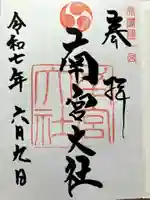 奉拝
南宮大社
令和七年
六月九日